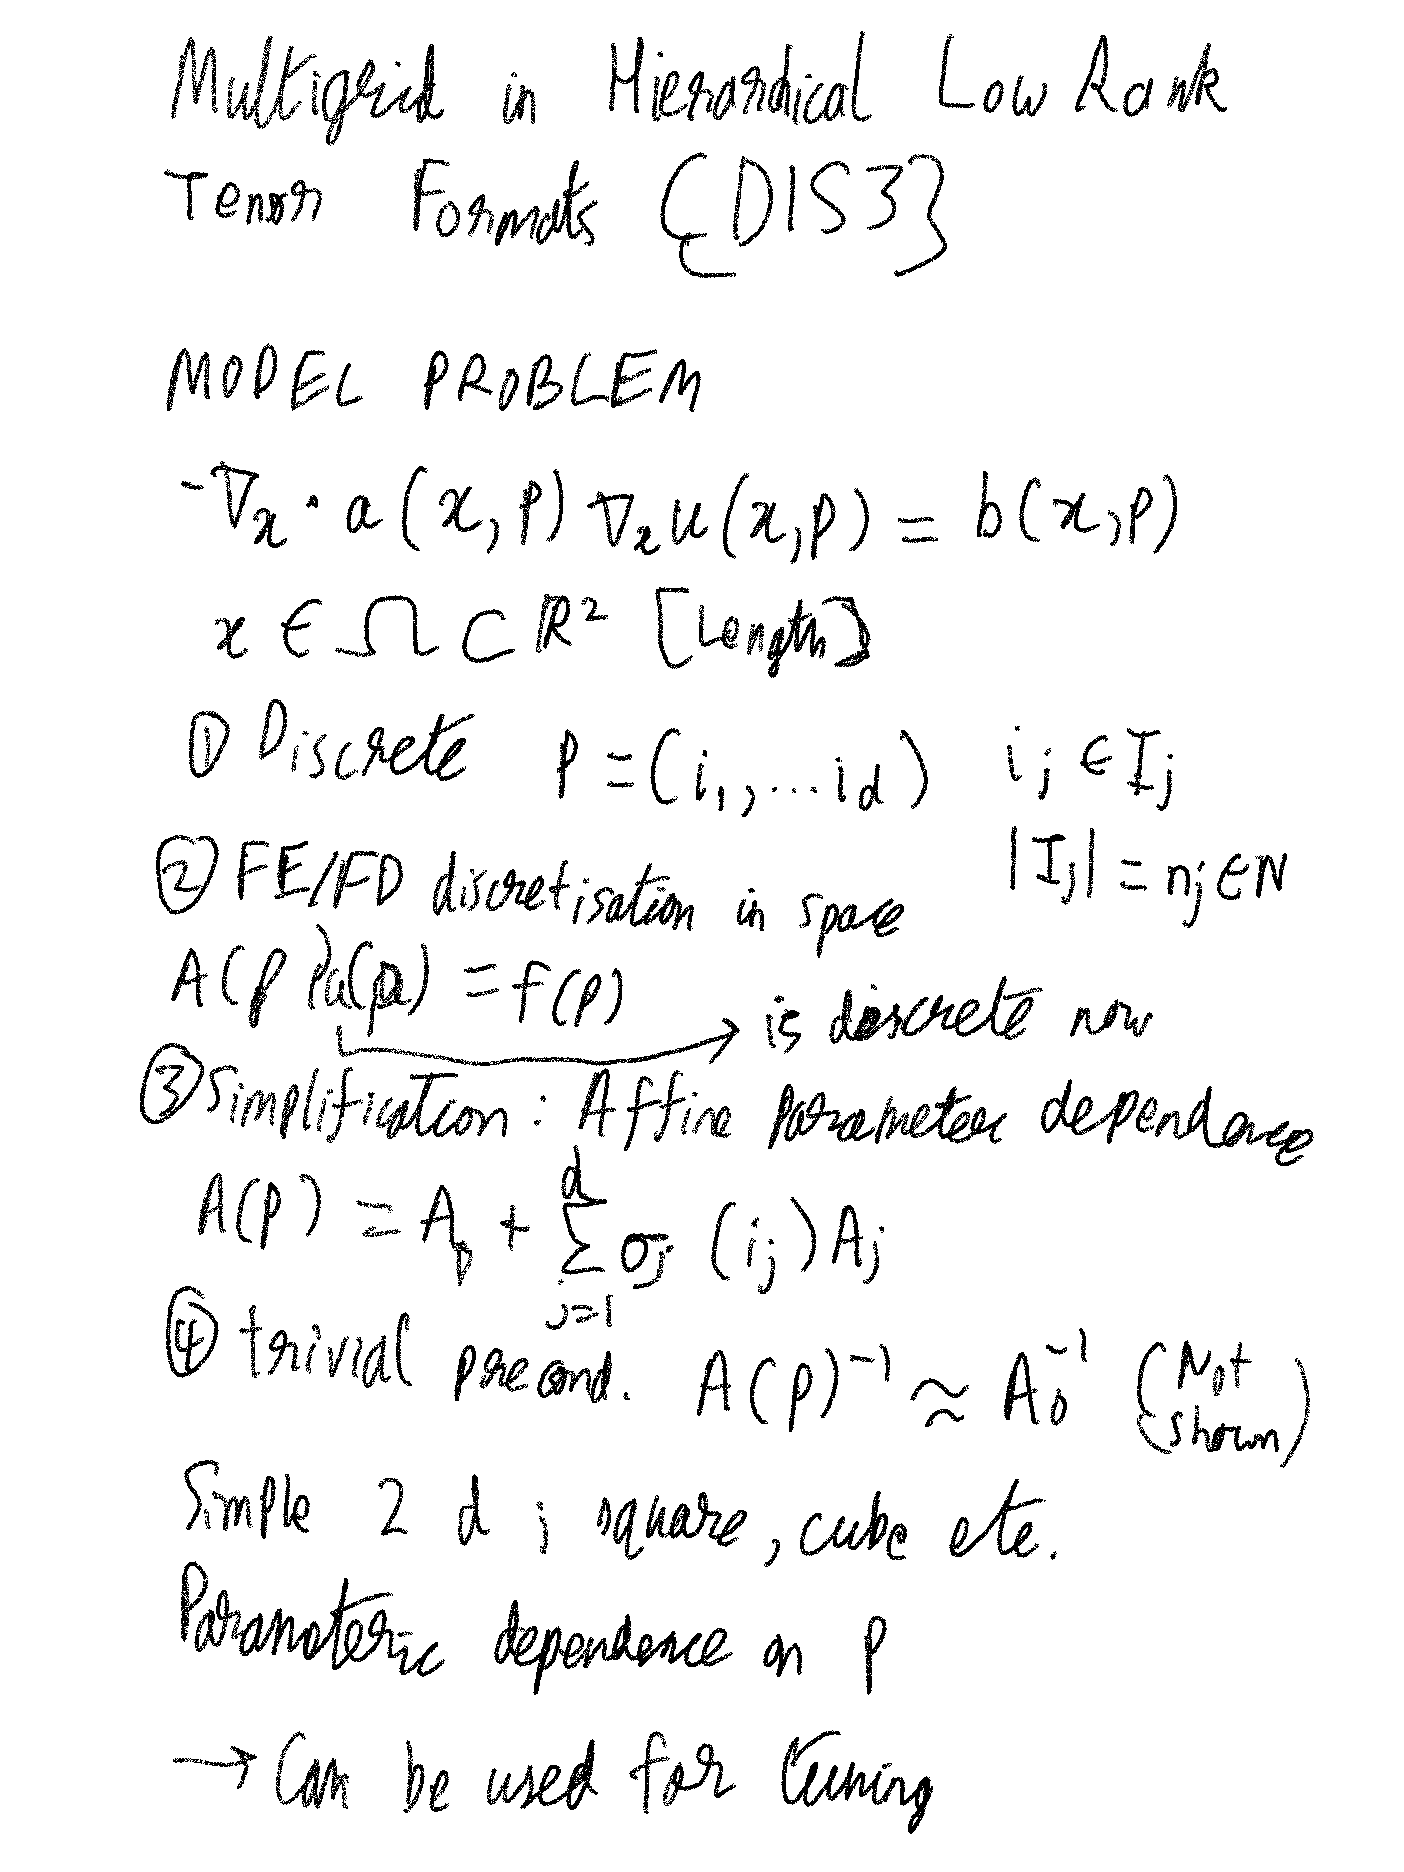 Multigrid in Hierardical Low Rank
Tenor Formats {DIS3}
MODEL PROBLEM
-∇ₓ · a(x,p) ∇ₓu(x,p) = b(x,p)
x ∈ Ω ⊂ ℝ² [Length]
① Discrete p = (i₁,...i_d) i_j ∈ I_j
|I_j| = n_j ∈ N
② FE/FD discretisation in space
A(p)u(p) = f(p)
→ is discrete now
③ Simplification: Affine Parameter dependence
A(p) = A₀ + Σ_{j=1}^{d} σ_j (i_j) A_j
④ trivial precond. A(p)⁻¹ ≈ A₀⁻¹ (Not shown)
Simple 2 d ; square, cube etc.
Parameteric dependence on p
→ Can be used for tuning